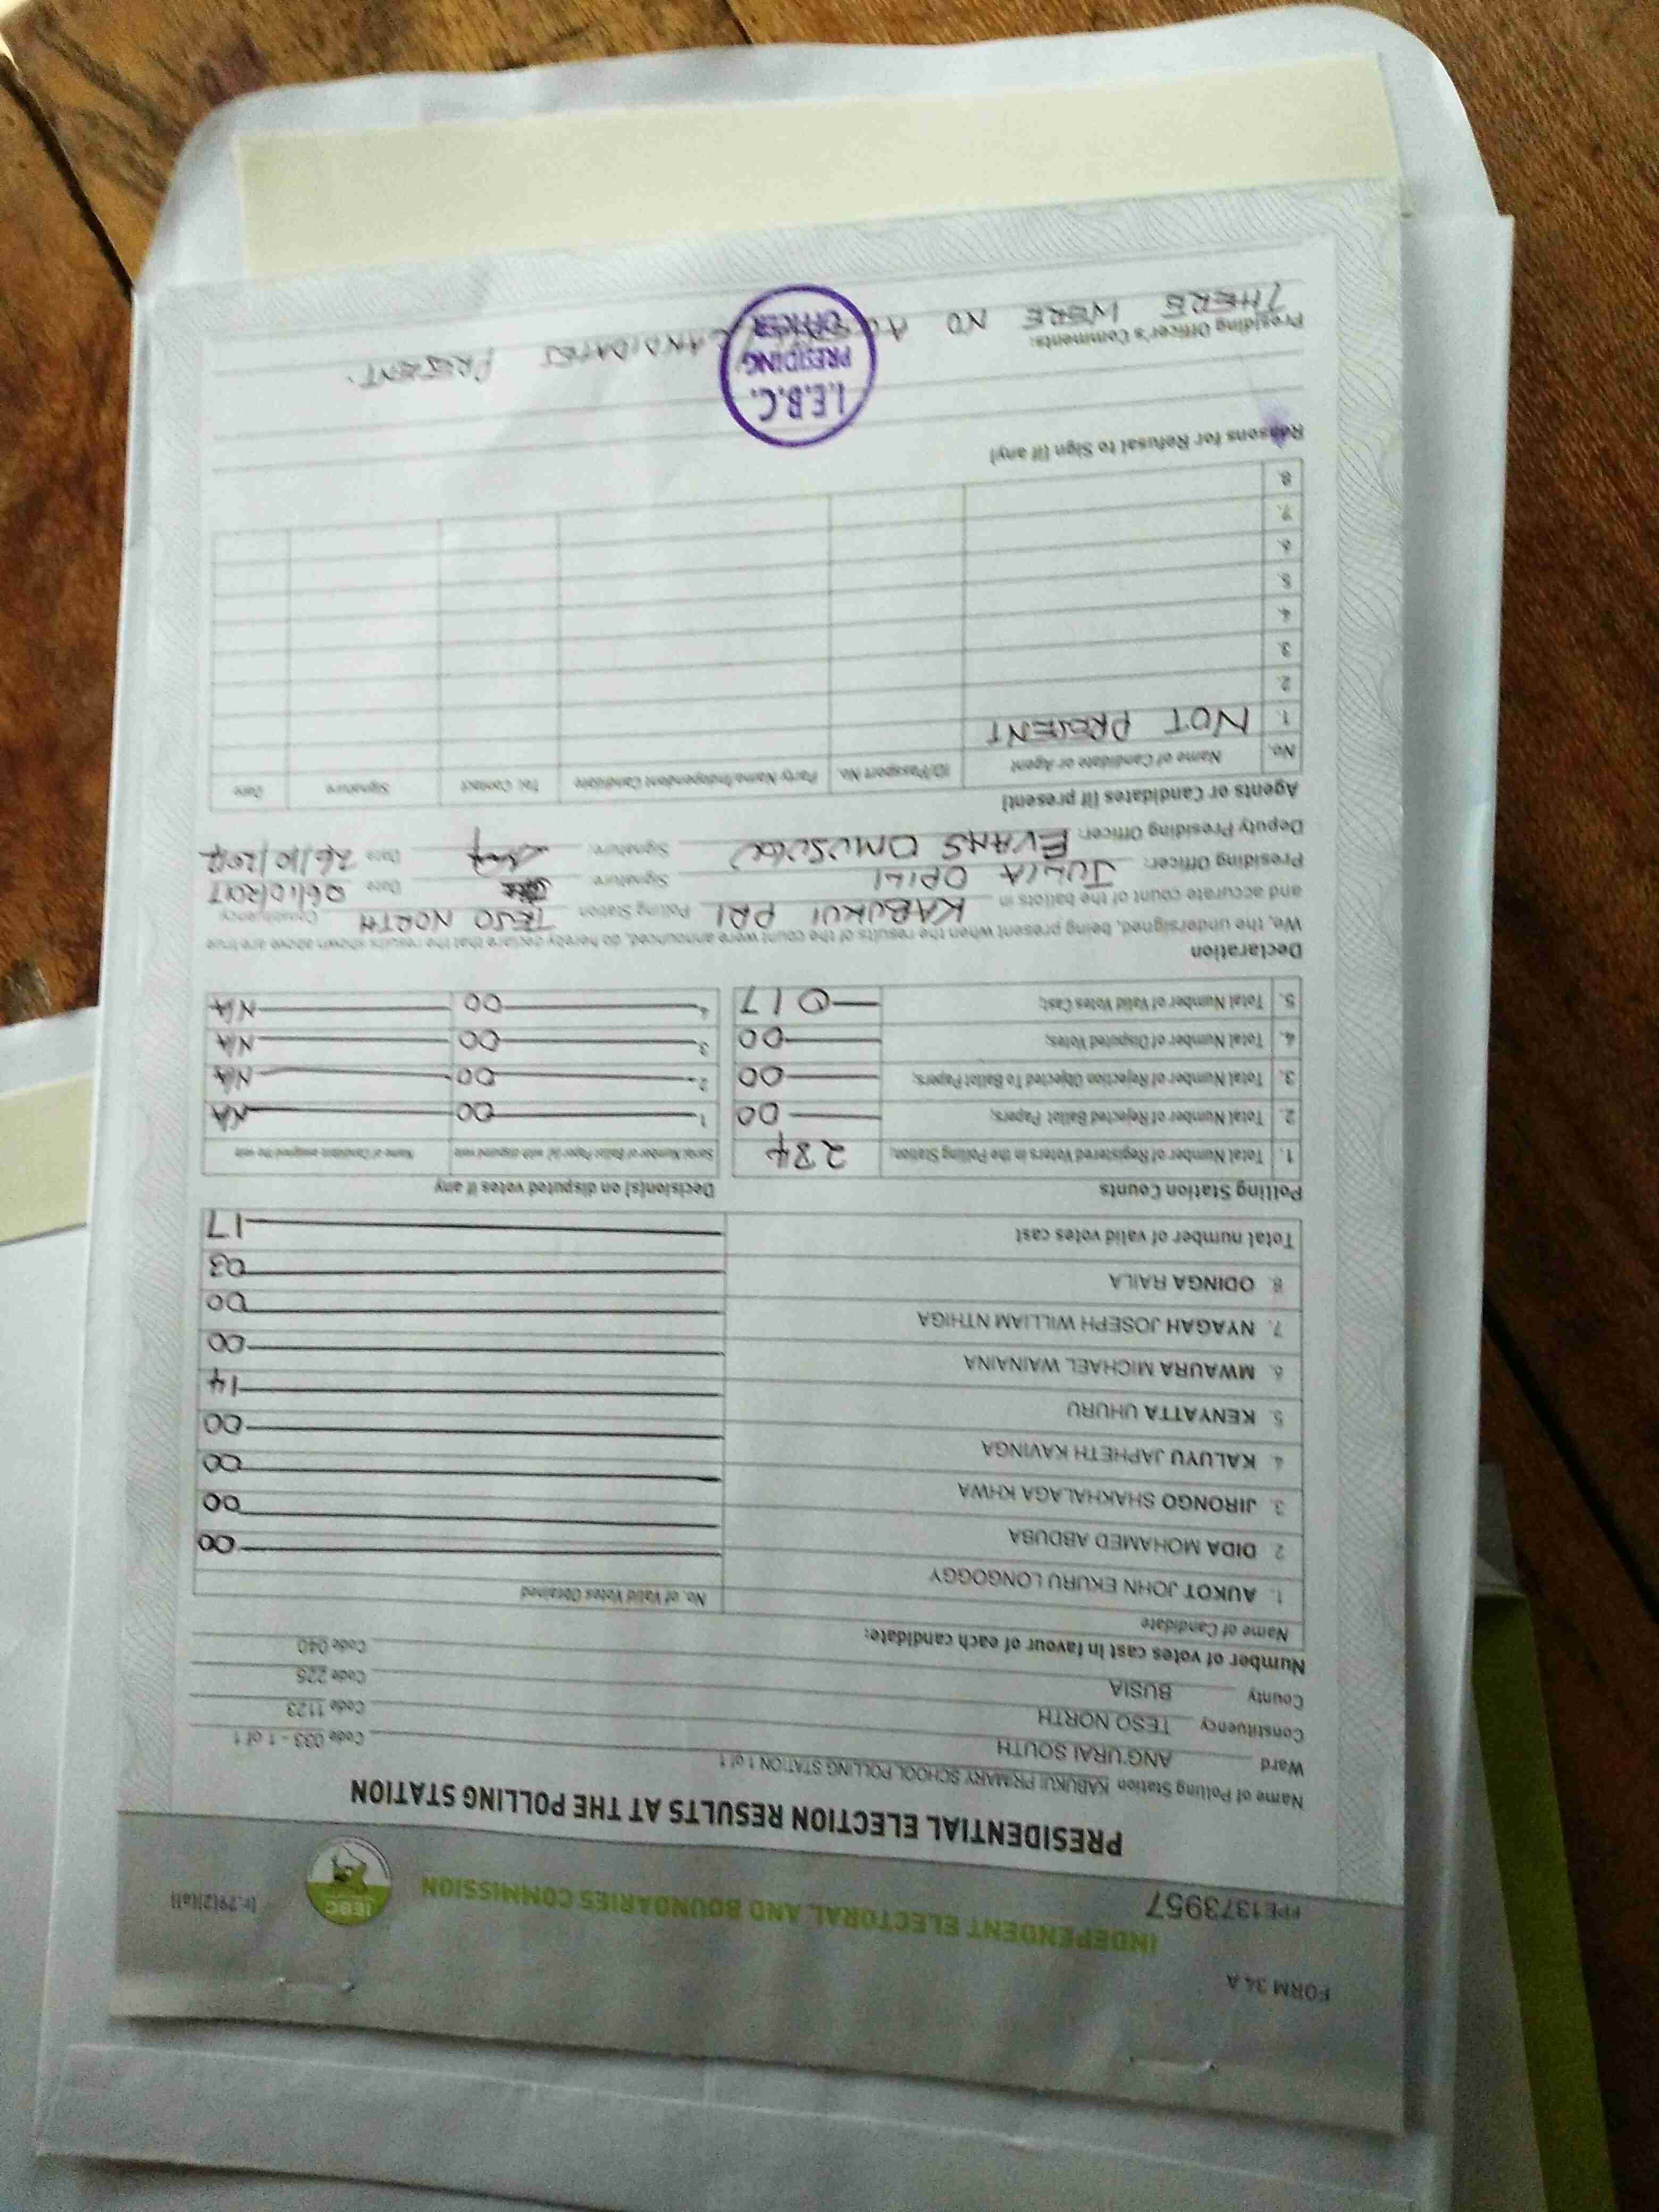 FORM 34 A
INDEPENDENT ELECTORAL AND BOUNDARIES COMMISSION
PPE1373957
IEBC
(r.79(2)(a))
PRESIDENTIAL ELECTION RESULTS AT THE POLLING STATION
Name of Polling Station KABUKUI PRIMARY SCHOOL POLLING STATION 1 of 1 Code 033 - 1 of 1
Ward ANG'URAI SOUTH Code 1123
Constituency TESO NORTH Code 225
County BUSIA Code 040
Number of votes cast in favour of each candidate:
Name of Candidate No. of Valid Votes Obtained
1. AUKOT JOHN EKURU LONGOGGY 00
2 DIDA MOHAMED ABDUBA 00
3. JIRONGO SHAKHALAGA KHWA 00
4 KALUYU JAPHETH KAVINGA 00
5. KENYATTA UHURU 14
6 MWAURA MICHAEL WAINAINA 00
7. NYAGAH JOSEPH WILLIAM NTHIGA 00
8. ODINGA RAILA 03
Total number of valid votes cast 17
Polling Station Counts Decision(s) on disputed votes if any
1. Total Number of Registered Voters in the Polling Station; 284 Serial Number of Ballot Paper (s) with disputed vote Name of Candidate assigned the vote
2. Total Number of Rejected Ballot Papers; 00 1 00 N/A
3. Total Number of Rejection Objected To Ballot Papers; 00 2 00 N/A
4. Total Number of Disputed Votes; 00 3 00 N/A
5. Total Number of Valid Votes Cast; 017 4 00 N/A
Declaration
We, the undersigned, being present when the results of the count were announced, do hereby declare that the results shown above are true
and accurate count of the ballots in KABUKUI PRI Polling Station TESO NORTH Constituency
Presiding Officer: JULIA OPILI Signature Date 26/10/2017
Deputy Presiding Officer: EVANS OMUSUGU Signature Date 26/10/2017
Agents or Candidates (if present)
No. Name of Candidate or Agent ID/Passport No. Party Name/Independent Candidate Tel. Contact Signature Date
1. NOT PRESENT
2.
3.
4.
5.
6.
7.
8.
Reasons for Refusal to Sign (if any)
Presiding Officer's Comments:
THERE WERE NO CANDIDATES PRESENT.
I.E.B.C.
PRESIDING
OFFICER